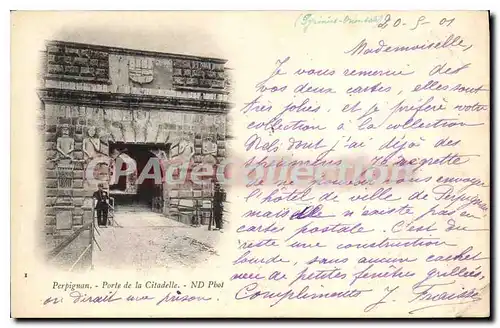 (Pyrénées-Orientales)
20-5-01
Mademoiselle,
Je vous remercie des
vos deux cartes, elles sont
très jolies. et je préfère votre
collection à la collection
dont j'ai déjà des
specimens. Je regrette
de ne pouvoir vous envoyer
l'hôtel de ville de Perpignan
mais elle n'existe pas en
carte postale. C'est du
reste une construction
lourde, sans aucun cachet
avec de petites fenêtres grillées
on dirait une prison.
Compliments J.
1
Perpignan. - Porte de la Citadelle. - ND Phot